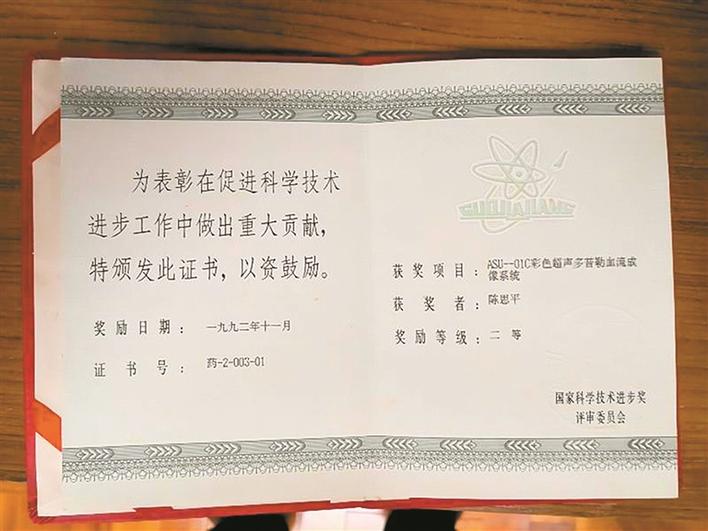 为表彰在促进科学技术
进步工作中做出重大贡献,
特颁发此证书,以资鼓励。
奖励日期: 一九九二年十一月
证书号: 药-2-003-01
GUOJIAJIANG
获奖项目: ASU--01C彩色超声多普勒血流成
像系统
获奖者: 陈思平
奖励等级: 二等
国家科学技术进步奖
评审委员会